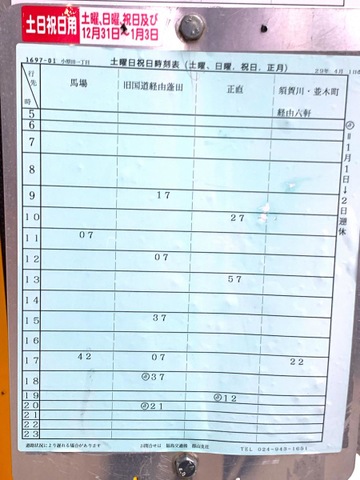 土日祝日用 土曜、日曜、祝日及び
12月31日~1月3日
1697-01 小原田一丁目 土曜日祝日時刻表(土曜、日曜、祝日、正月) 29年 4月 1日
行先 馬場 旧国道経由蓬田 正直 須賀川・並木町
時 経由六軒
5
6
7
8
9 17
10 27
11 07
12 07
13 57
14
15 37
16
17 42 07 22
18 ㋣37
19 ㋣12
20 ㋣21
21
22
23
=1月1日→2日運休
道路状況により遅れる場合があります お問合せは 福島交通㈱ 郡山支社 TEL 024-943-1691